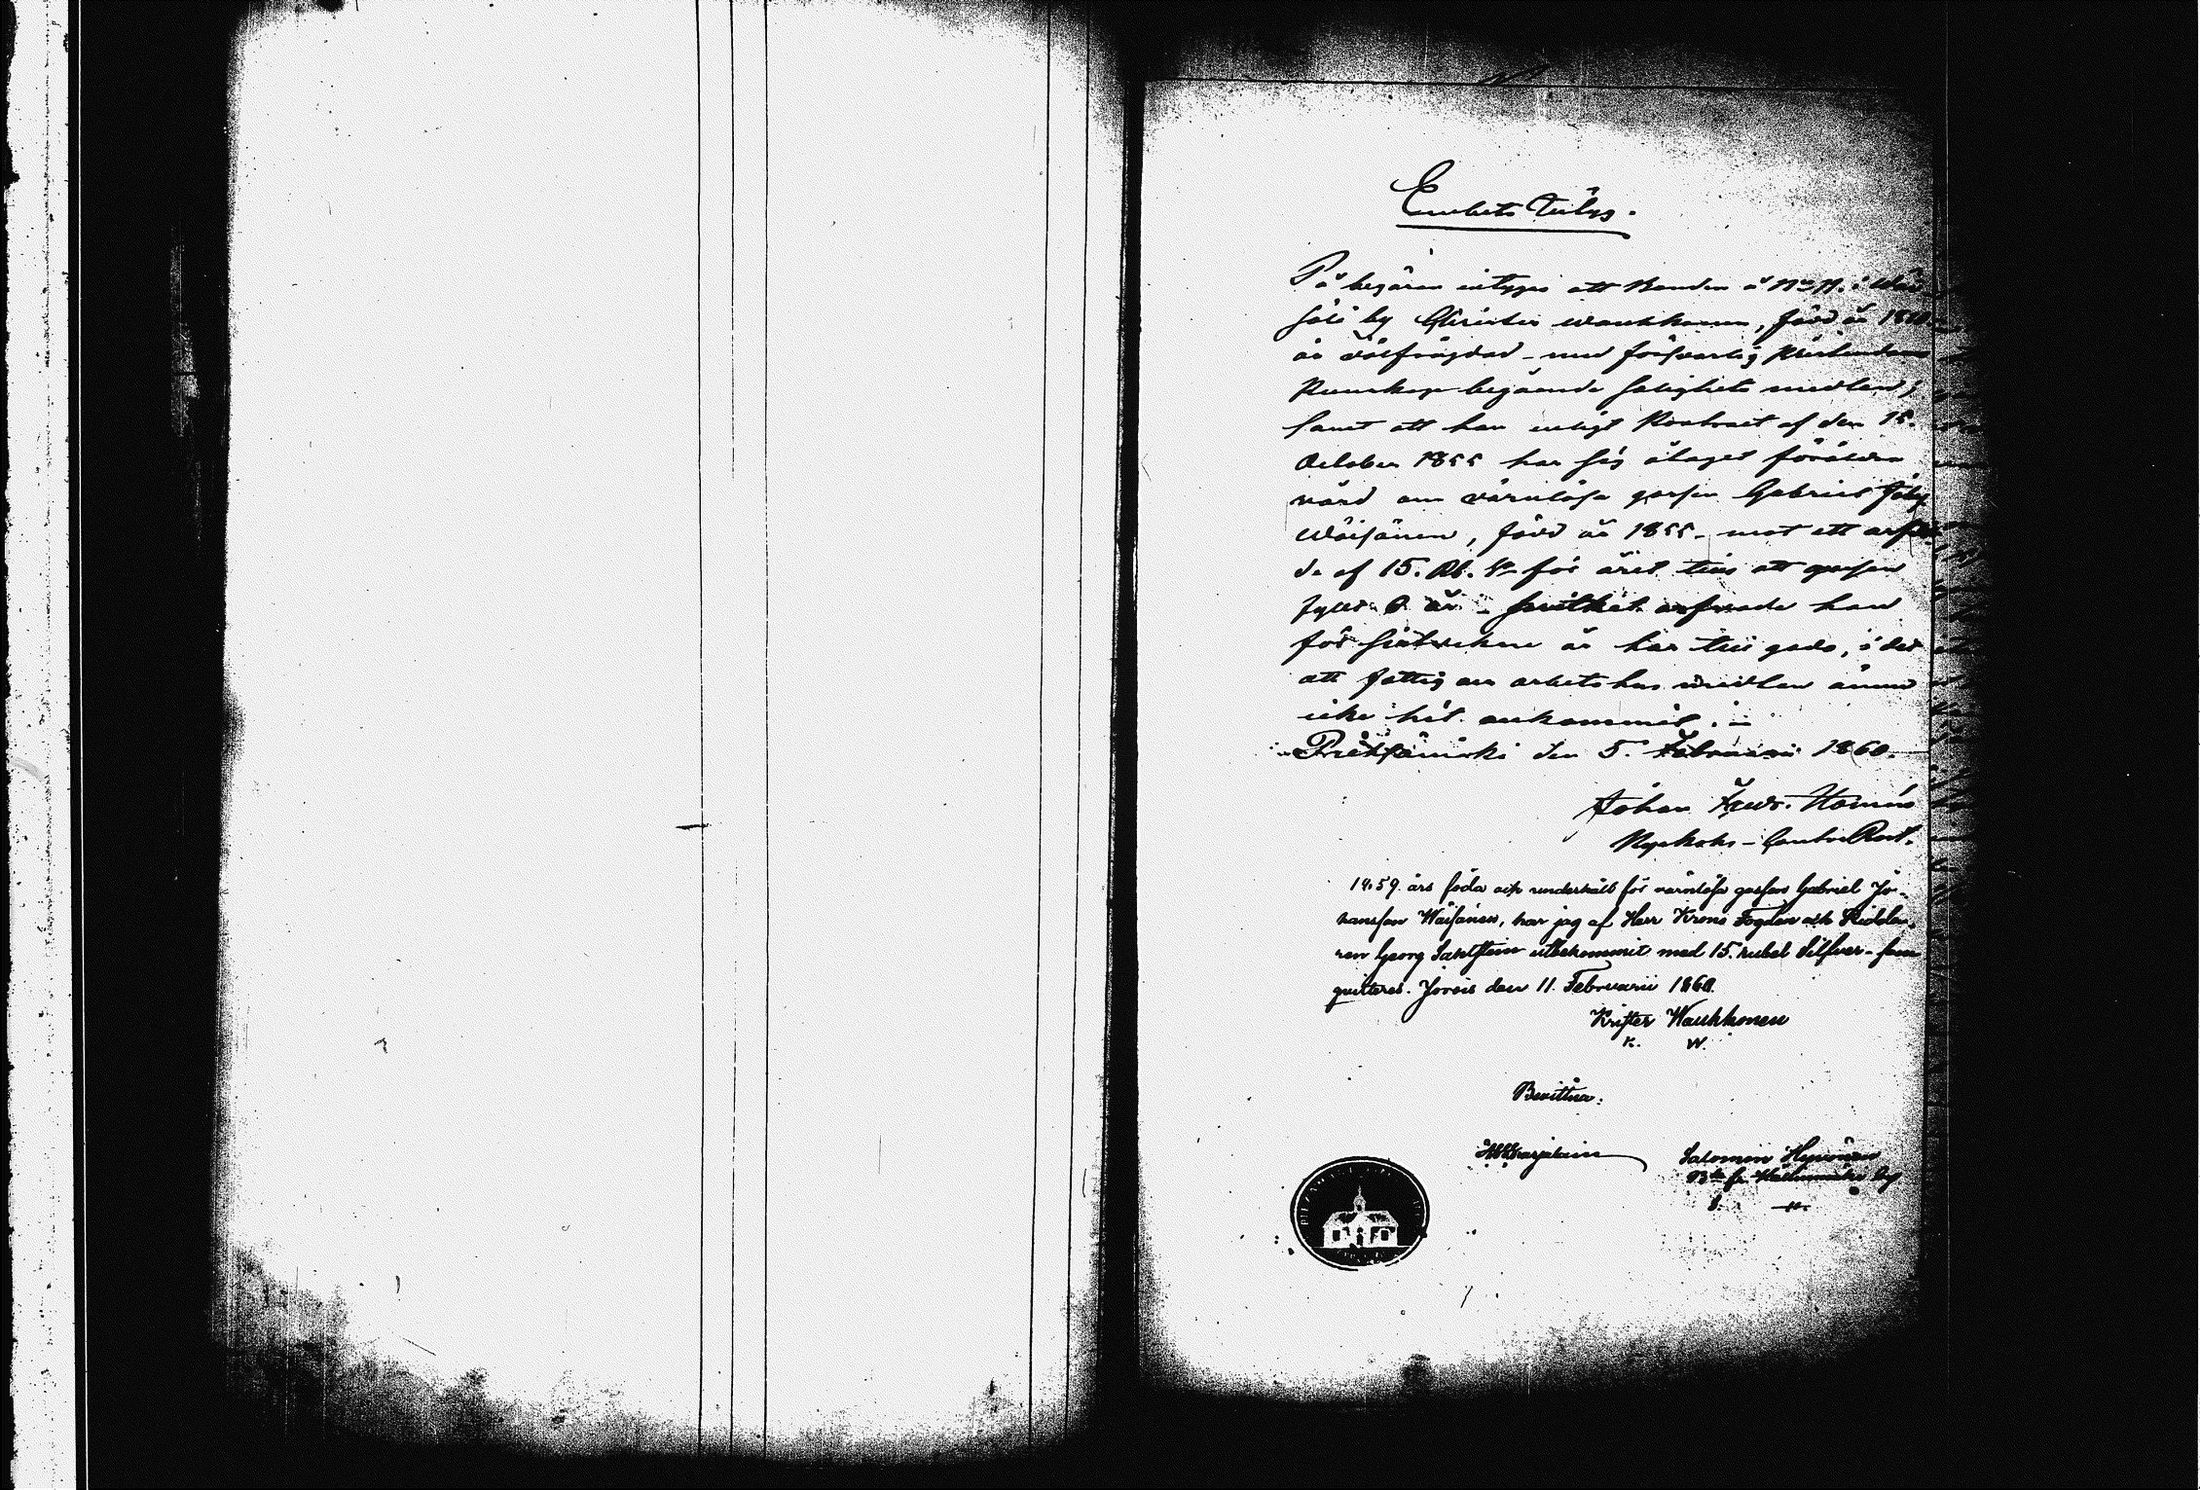 Embets Bevis.
På begäran intygas att Bonden å No 11. i
sälä by Christer Waukkonen, född år 18
är välfräjdad - med försvarlig Kristendoms
Kunskap begående salighets medlen;
samt att han enligt Kontract af den 15.
October 1855 har sig åtaget föräldra
vård om värnlösa gossen Gabriel Johs
Wäisänen, född år 1855 - mot ett arfvo-
de af 15. Rb. Sr för året tills att gossen
fyllt år - hvilket arfvode han
för sistvekne år har till godo, i det
att fattig och arbetshus medlen ännu
icke hit ankommit.
den 5. Februarii 1860.
Johan Fredr.
Kyrkoh.
1859 års föda och underhåll för värnlösa gossen Gabriel Jo-
hansson Wäisänen, har jag af Herr Krono Fogden och Ridda-
ren Georg Sahlstein utbekommit med 15. rubel Silfver - som
quitteras. Jorois den 11. Februarii 1860.
Krister Waukkonen
K. W.
Bevittna:
Salomon Hyvönen
by
S. H.